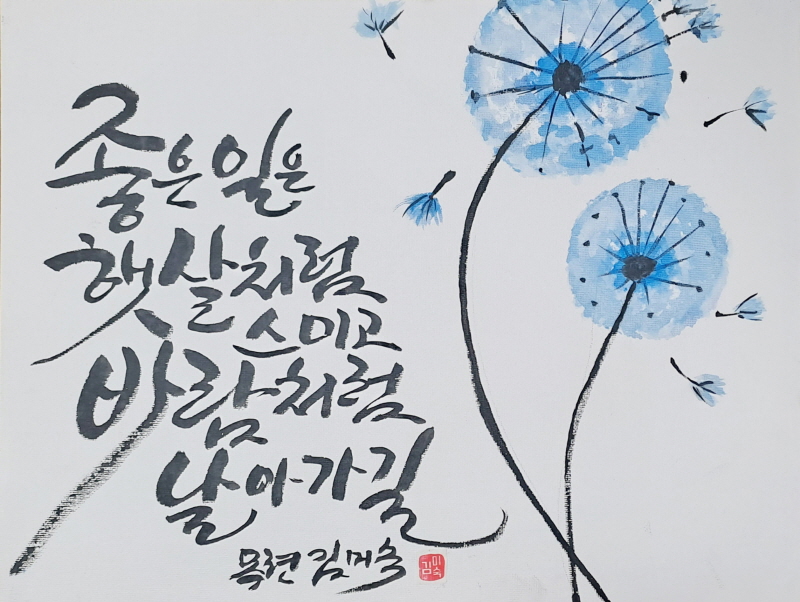 좋은 일은
햇살처럼
스미고
바람처럼
날아가길
목련 김미숙
김미숙